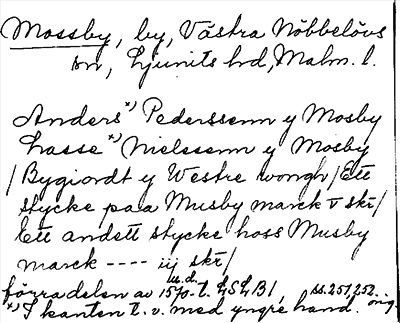 Mossby, by, Västra Nöbbelövs
sn, Ljunits hd, Malm. l.
Anders *) Pederssenn y Mosby
Lasse *) Nielssenn y Mosby
/Bygiordt y Westre wongh/Ett
stycke paa Musby marck v skr/
Ett andett stycke hoss Musby
marck ---- iij skr/
u.d.
förra delen av 1570-t. LSLB1, ss. 251, 252. orig.
*) I kanten t.v. med yngre hand.